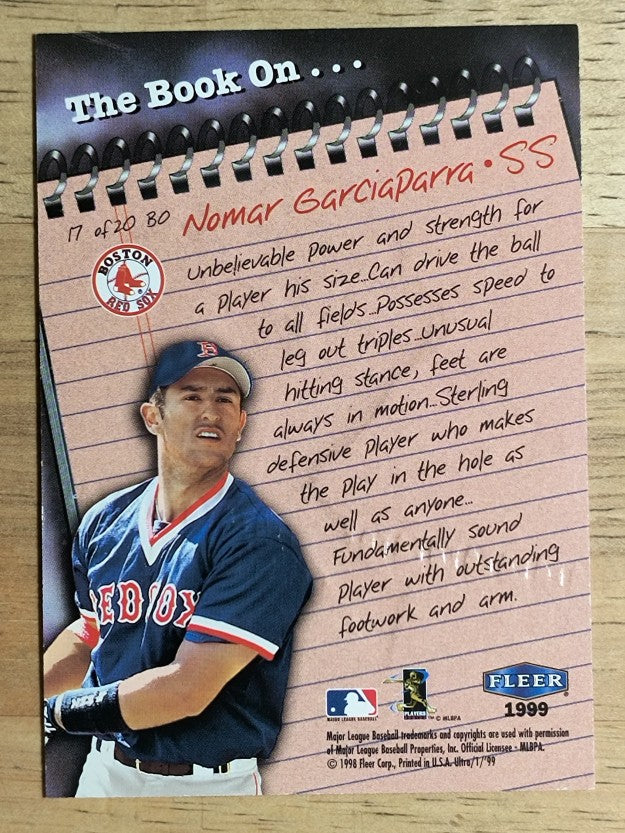 The Book On . . .
17 of 20 BO
Nomar Garciaparra • SS
BOSTON
RED SOX
Unbelievable power and strength for
a player his size...Can drive the ball
to all fields...Possesses speed to
leg out triples...Unusual
hitting stance, feet are
always in motion...Sterling
defensive player who makes
the play in the hole as
well as anyone...
Fundamentally sound
player with outstanding
footwork and arm.
B
RED SOX
MAJOR LEAGUE BASEBALL
PLAYERS
© MLBPA
FLEER
1999
Major League Baseball trademarks and copyrights are used with permission
of Major League Baseball Properties, Inc. Official Licensee - MLBPA.
© 1998 Fleer Corp., Printed in U.S.A. Ultra/T/'99